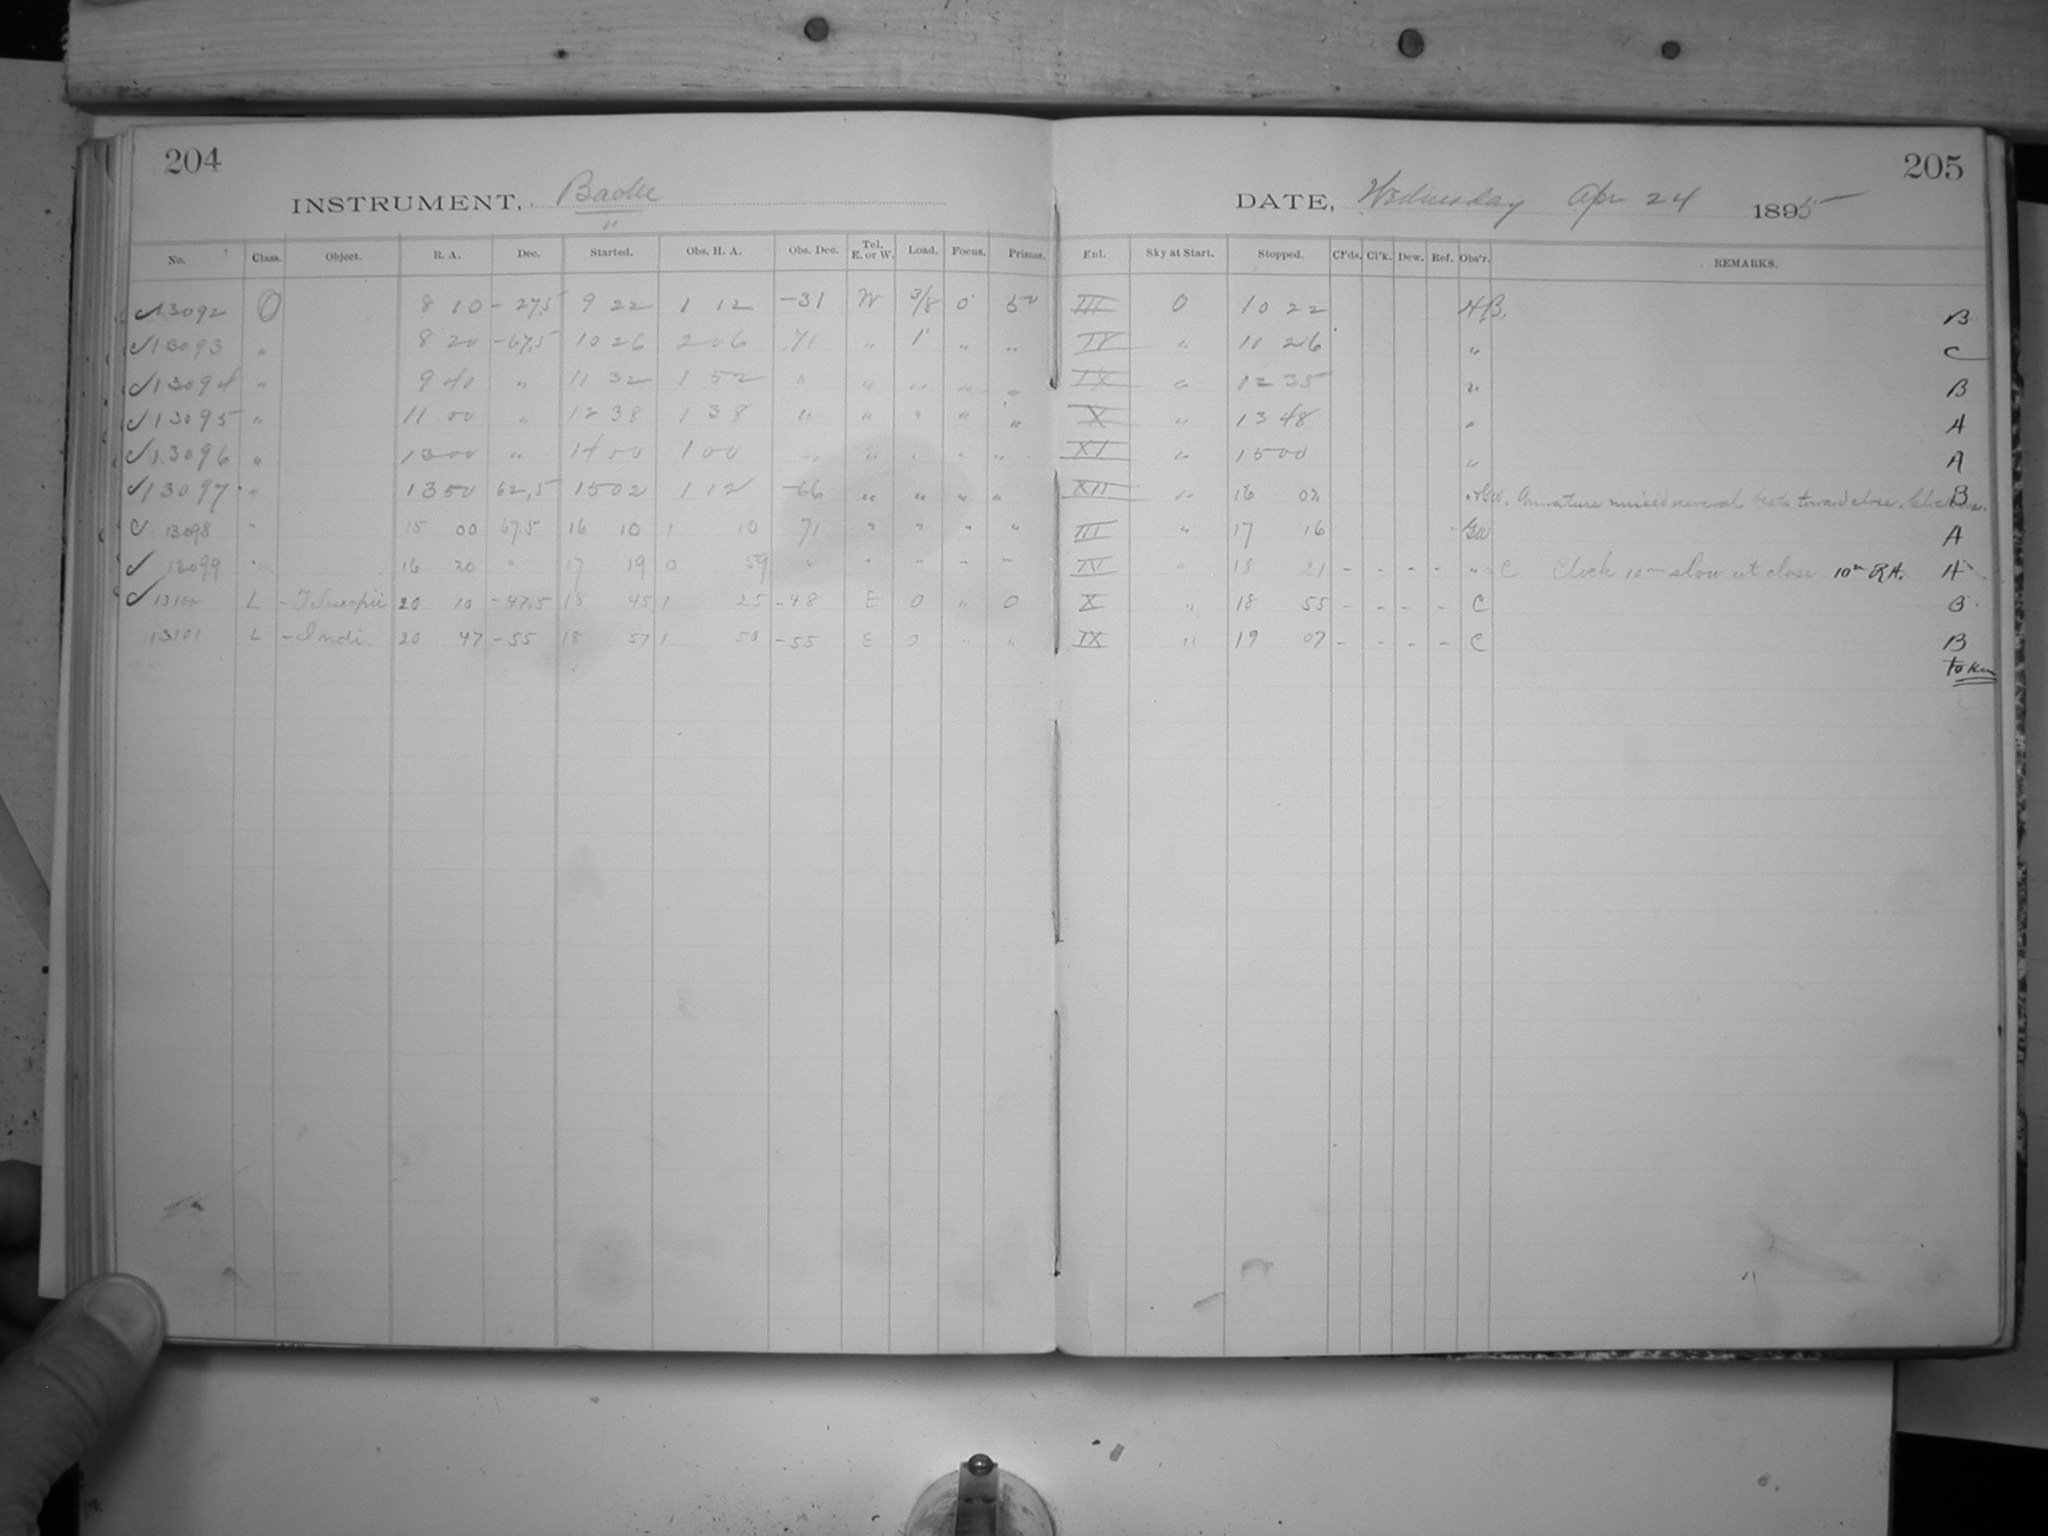 204
INSTRUMENT, Bache
DATE, Wednesday Apr 24 1895
205
No. Class. Object. R. A. Dec. Started. Obs. H. A. Obs. Dec. Tel. E. or W. Load. Focus. Prisms. Enl. Sky at Start. Stopped. Cl'ds. Cl'k. Dew. Ref. Obs'r. REMARKS.
✓13092 O 8 10 -27,5 9 22 1 12 -31 W 3/8 0 50 III 0 10 22 B
✓13093 " 8 20 -67,5 10 26 2 06 71 " 1 " " IV " 11 26 " C
✓13094 " 9 40 " 11 32 1 52 " " " " " IX " 12 35 " B
✓13095 " 11 00 " 12 38 1 38 " " " " " X " 13 48 " A
✓13096 " 13 00 " 14 00 1 00 " " " " " XI " 15 00 " A
✓13097 " 13 50 62,5 15 02 1 12 -66 " " " " XII " 16 02 Armature missed several beats toward close. B
✓ 13098 " 15 00 67.5 16 10 1 10 71 " " " " III " 17 16 GW A
✓ 13099 " 16 20 " 17 19 0 59 " " " " " IV " 18 21 - - - - " C Clock 10m slow at close 10m RA. A
✓ 13100 L - Telescopii 20 10 -47.5 18 45 1 25 -48 E 0 " 0 X " 18 55 - - - - C B
13101 L - Indi 20 47 -55 18 57 1 50 -55 E 0 " " IX " 19 07 - - - - C B